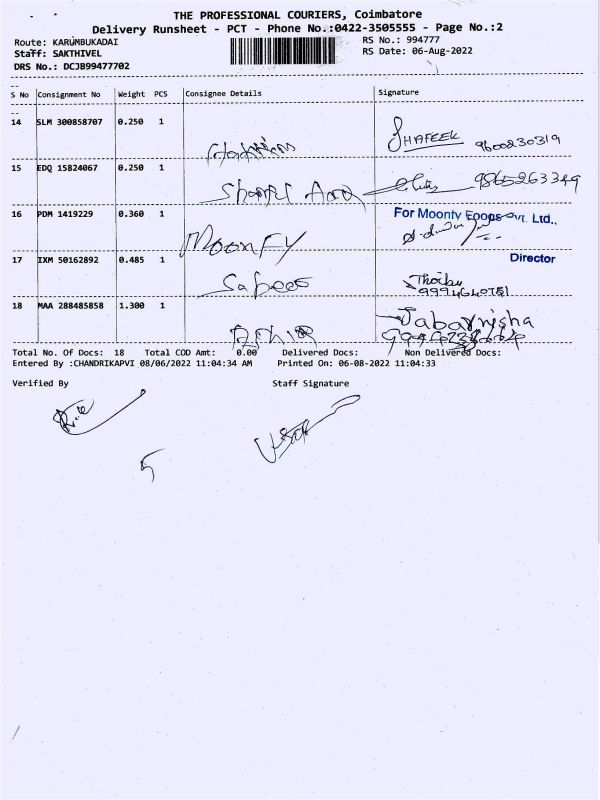 THE PROFESSIONAL COURIERS, Coimbatore
Delivery Runsheet - PCT - Phone No.:0422-3505555 - Page No.:2
Route: KARUMBUKADAI RS No.: 994777
Staff: SAKTHIVEL RS Date: 06-Aug-2022
DRS No.: DCJB99477702
S No Consignment No Weight PCS Consignee Details Signature
14 SLM 300858707 0.250 1 SHAFEEK 9600230319
15 EDQ 15824067 0.250 1 9865263349
16 PDM 1419229 0.360 1 MOONFY For Moonfy Foods Pvt. Ltd.,
Director
17 IXM 50162892 0.485 1
18 MAA 288485858 1.300 1
Total No. Of Docs: 18 Total COD Amt: 0.00 Delivered Docs: Non Delivered Docs:
Entered By :CHANDRIKAPVI 08/06/2022 11:04:34 AM Printed On: 06-08-2022 11:04:33
Verified By Staff Signature